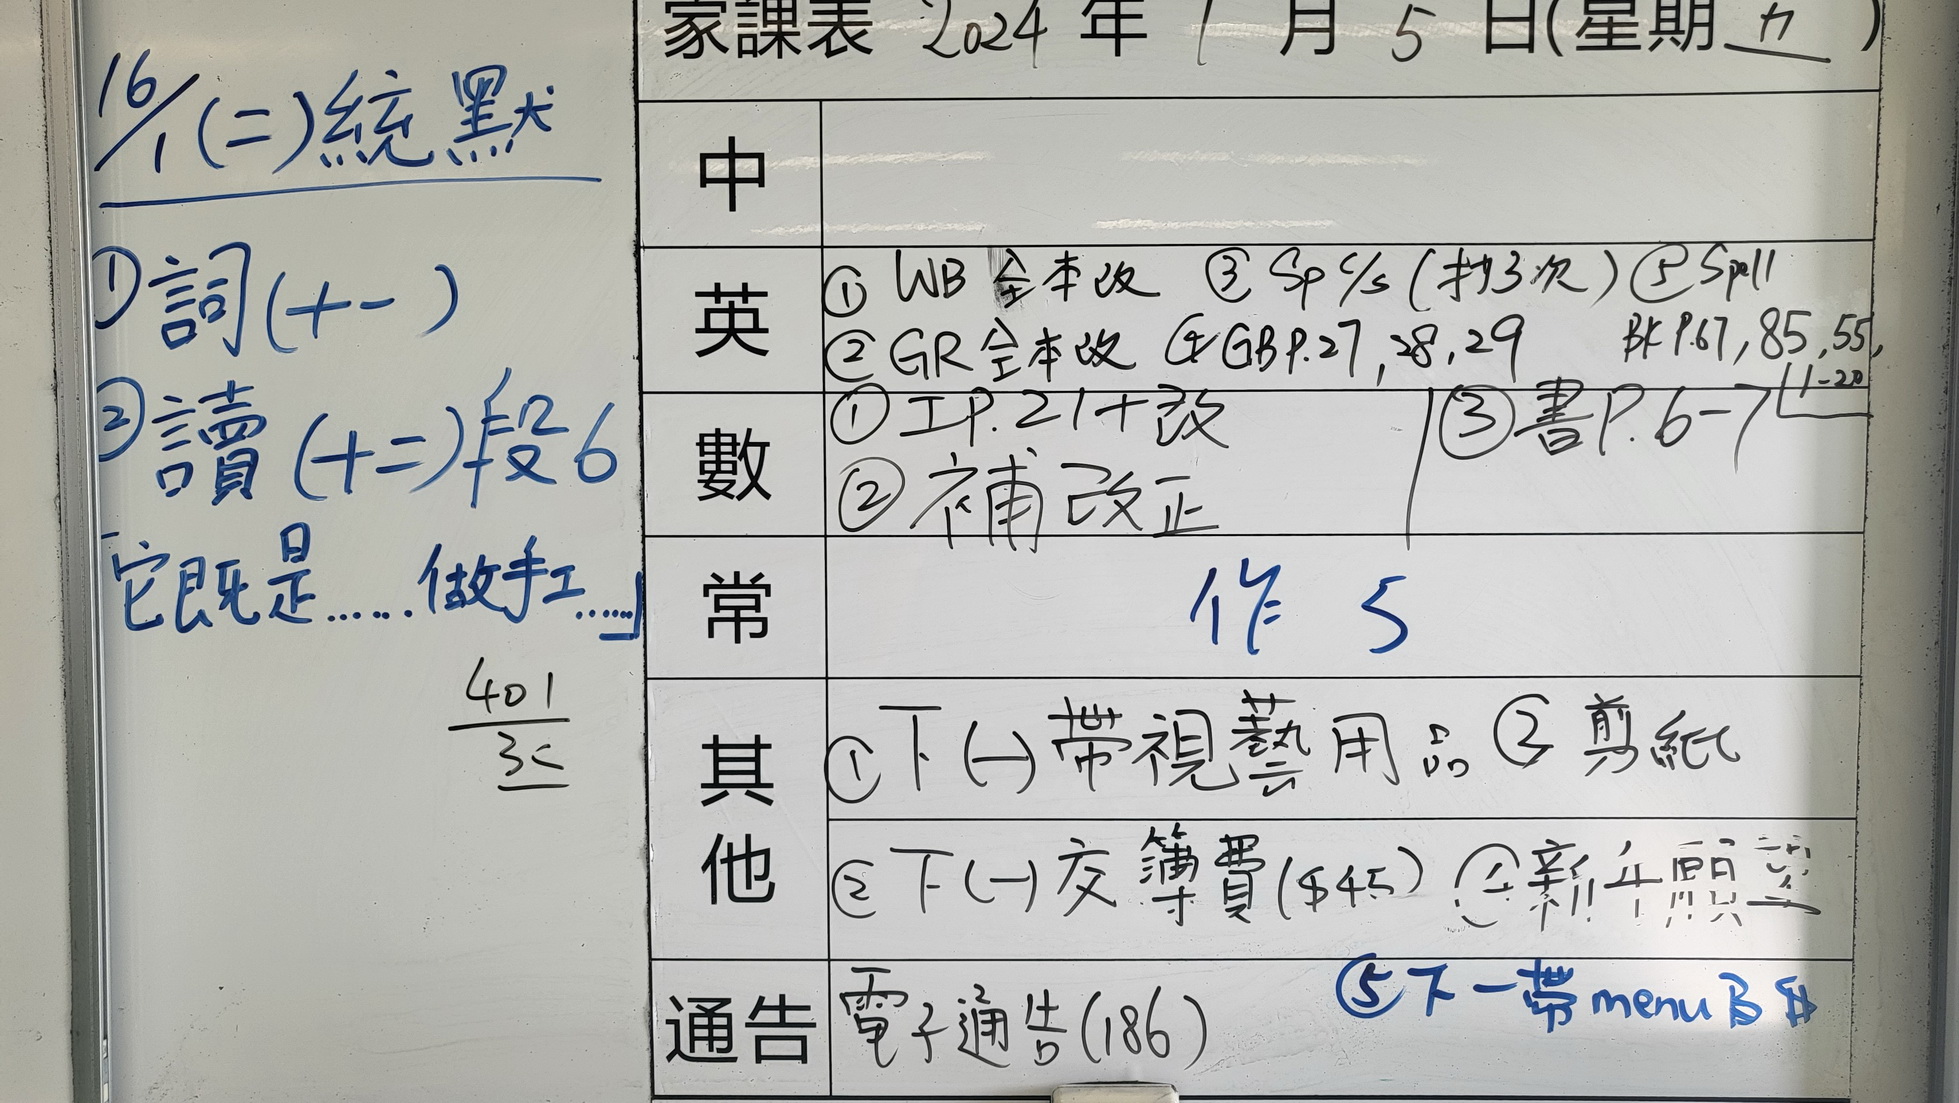 家課表 2024 年 1 月 5 日(星期 五 )
16/1 (二) 統默
① 詞(十一)
② 讀(十二)段6
「它既是......做手工......」
401
中
英
① WB 全本改 ③ Sp c/s (抄3次) ⑤ Spell
② GR 全本改 ④ GB P.27, 28, 29 BK P.67, 85, 55,
1-20
數
① 工P.21+改 ③ 書P.6-7
② 補改正
常
作 5
其他
① 下(一)帶視藝用品 ③ 剪紙
② 下(一)交簿費($45) ④ 新年願望
⑤ 下一帶 menu B 冊
通告
電子通告(186)